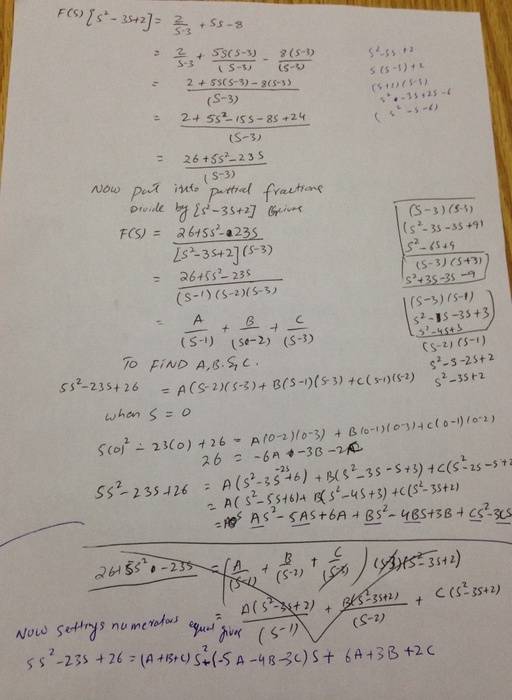 F(S) [S² - 3S + 2] = 2/(S-3) + 5S - 8
= 2/(S-3) + 5S(S-3)/(S-3) - 8(S-3)/(S-3)
= 2 + 5S(S-3) - 8(S-3) / (S-3)
= 2 + 5S² - 15S - 8S + 24 / (S-3)
= 26 + 5S² - 23S / (S-3)
S² - 3S + 2
S(S-3) + 2
(S+1)(S-3)
S² - 3S + 2S - 6
(S² - S - 6)
NOW put into partial fractions
Divide by [S² - 3S + 2] gives
F(S) = 26 + 5S² - 23S / [S² - 3S + 2](S-3)
= 26 + 5S² - 23S / (S-1)(S-2)(S-3)
= A/(S-1) + B/(S-2) + C/(S-3)
(S-3)(S-3)
(S² - 3S - 3S + 9)
S² - 6S + 9
(S-3)(S+3)
S² + 3S - 3S - 9
(S-3)(S-1)
S² - S - 3S + 3
S² - 4S + 3
(S-2)(S-1)
S² - S - 2S + 2
S² - 3S + 2
TO FIND A, B, & C.
5S² - 23S + 26 = A(S-2)(S-3) + B(S-1)(S-3) + C(S-1)(S-2)
when S = 0
5(0)² - 23(0) + 26 = A(0-2)(0-3) + B(0-1)(0-3) + C(0-1)(0-2)
26 = -6A - 3B - 2
5S² - 23S + 26 = A(S² - 3S -2S + 6) + B(S² - 3S - S + 3) + C(S² - 2S - S + 2
= A(S² - 5S + 6) + B(S² - 4S + 3) + C(S² - 3S + 2)
= AS² - 5AS + 6A + BS² - 4BS + 3B + CS² - 3CS
26 + 5S² - 23S = (A/(S-1) + B/(S-2) + C/(S-3)) (S-3)(S² - 3S + 2)
= A(S² - 3S + 2)/(S-1) + B(S² - 3S + 2)/(S-2) + C(S² - 3S + 2)
Now settings numerators equal gives
5S² - 23S + 26 = (A+B+C)S² + (-5A - 4B - 3C)S + 6A + 3B + 2C